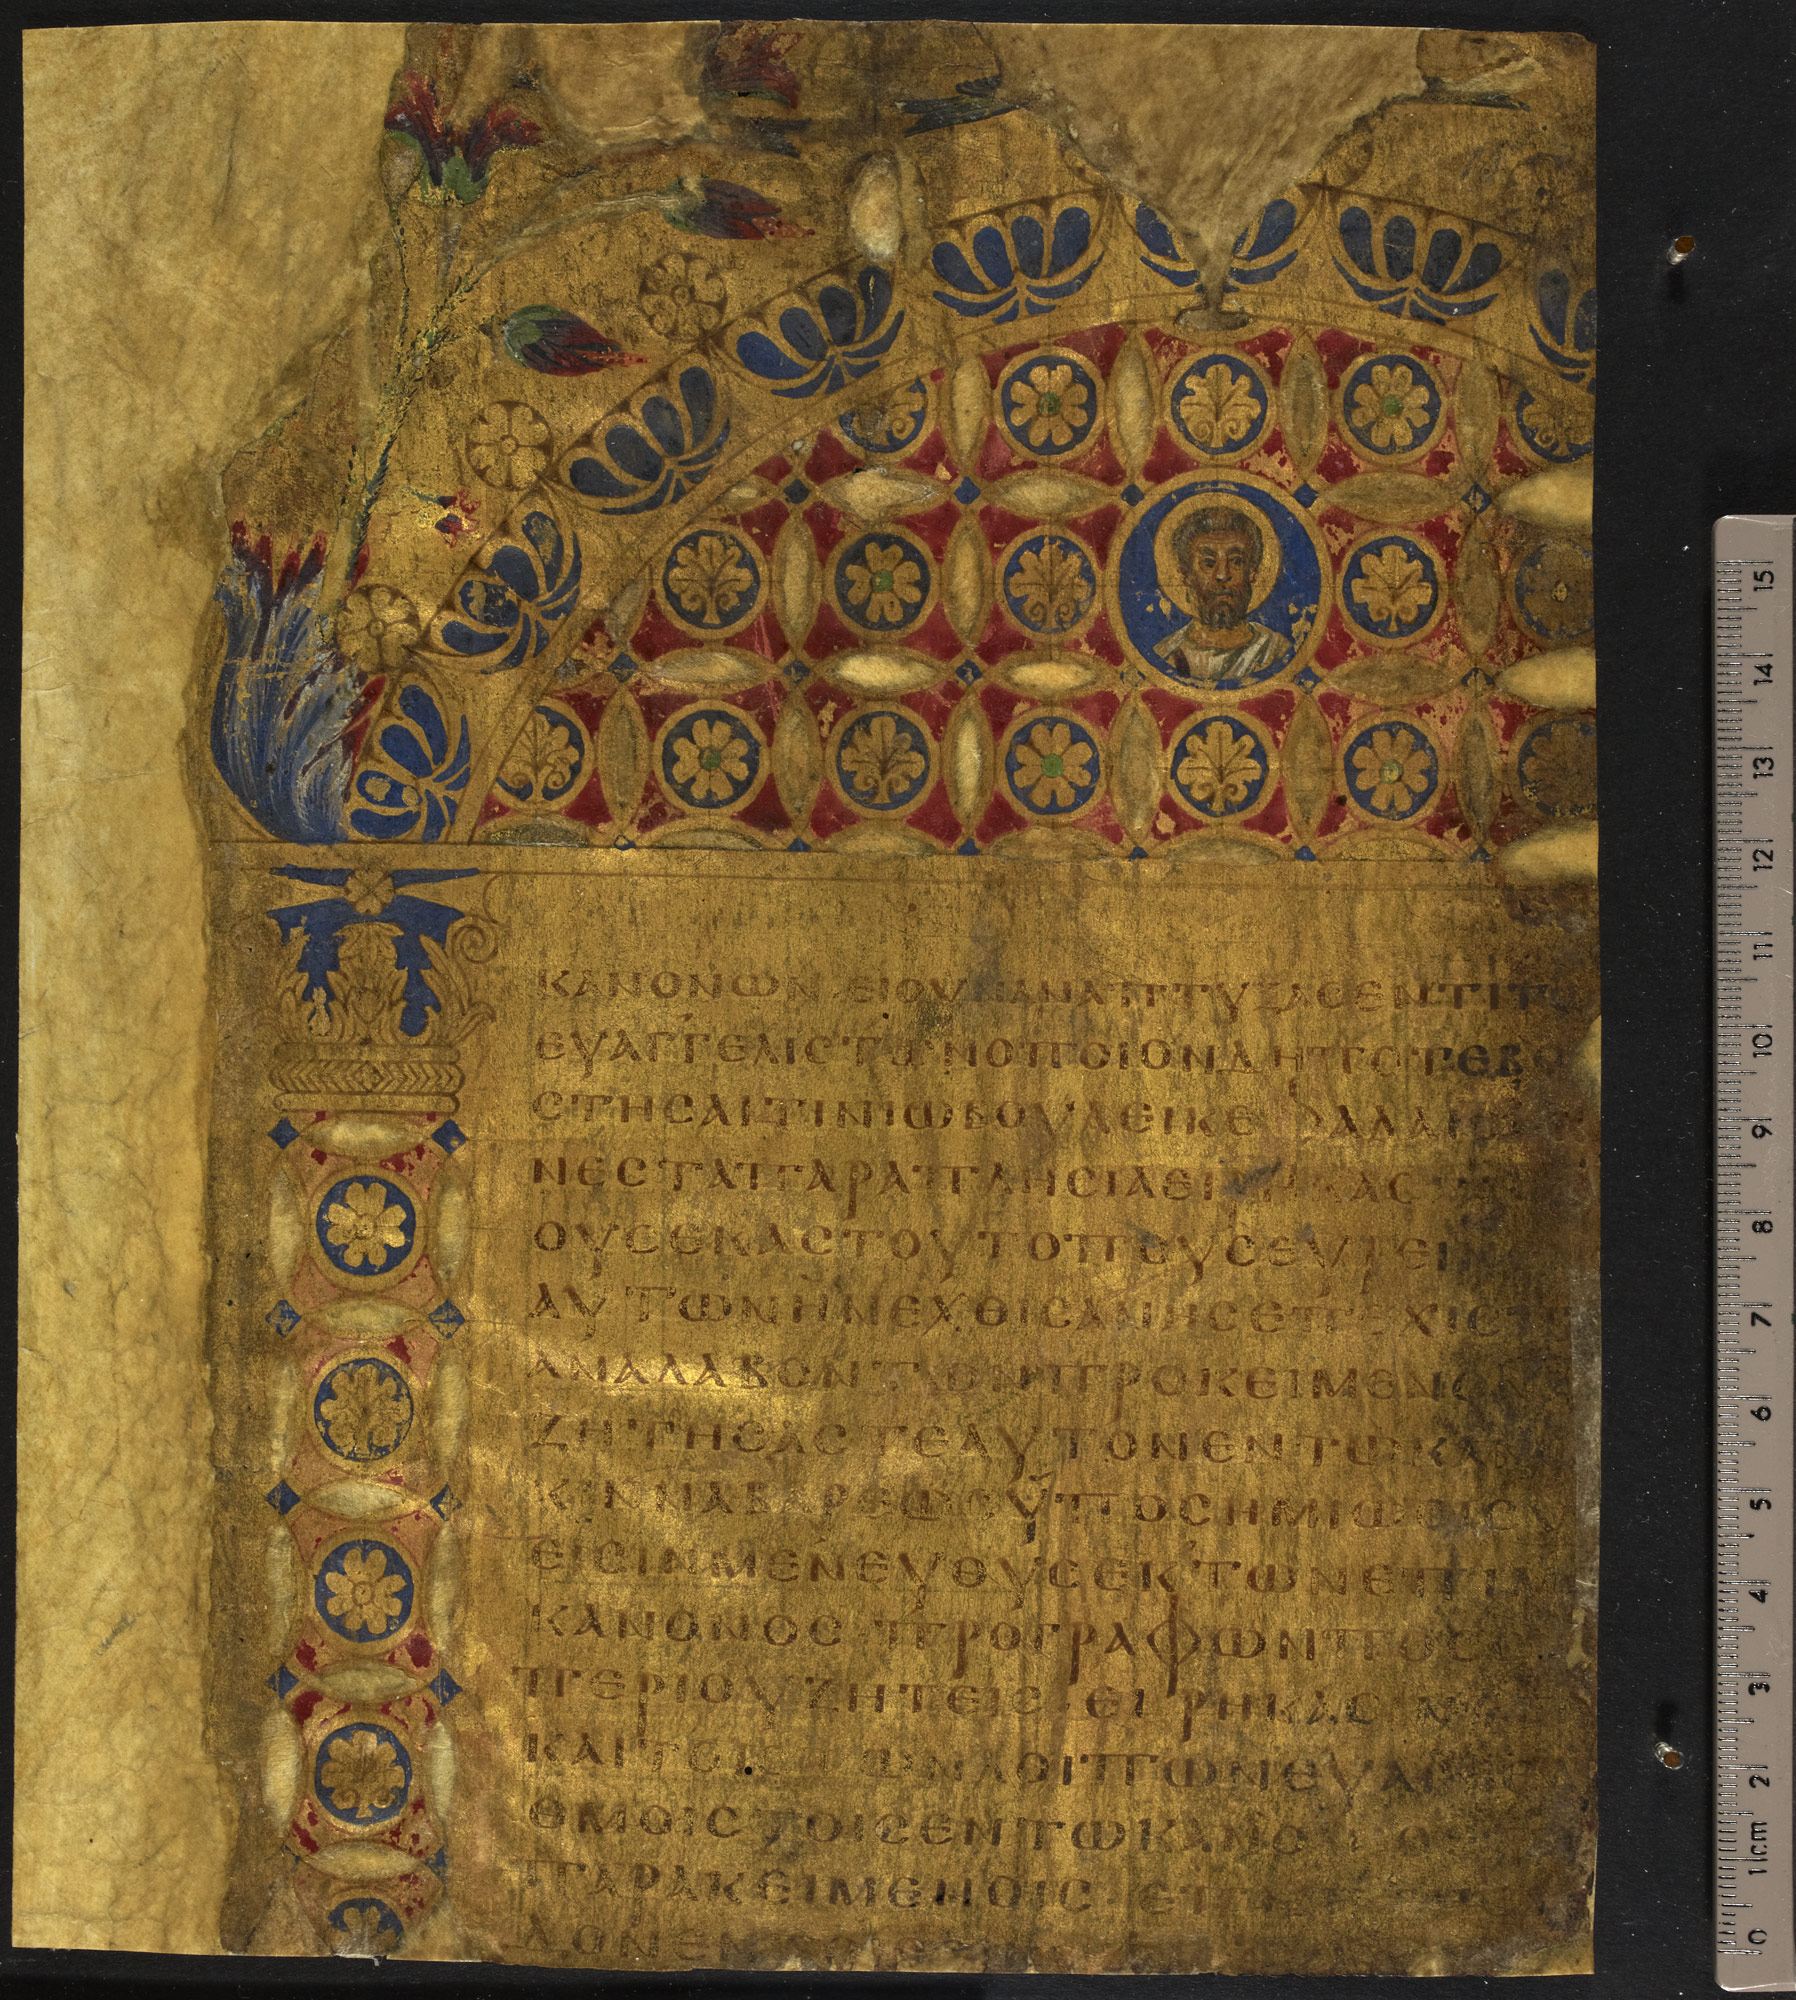 ΚΑΝΟΝΩΝ ΕΙ ΟΥΝ ΑΝΑΠΤΥΞΑΣ ΕΝ ΤΙ ΤΩ
ΕΥΑΓΓΕΛΙΣΤΩΝ ΟΠΟΙΟΝΔΗΠΟΤΕ ΒΟ
ΣΤΗΣΑΙ ΤΙΝΙ Ω ΒΟΥΛΕΙ ΚΕΦΑΛΑΙΩ
ΝΕΣ ΤΑ ΠΑΡΑΠΛΗΣΙΑ ΕΙΡΗΚΑΣ
ΟΥΣ ΕΚΑΣΤΟΥ ΤΟΠΟΥΣ ΕΥΡΕΙ
ΑΥΤΩΝ ΗΝΕΧΘΙΣΑΝ ΗΣ ΕΠΕΧΙΣ
ΑΝΑΛΑΒΟΝ ΤΩΝ ΠΡΟΚΕΙΜΕΝΟΝ
ΖΗΤΗΣΑΣ ΤΕ ΑΥΤΟΝ ΕΝ ΤΩ ΚΑΝ
ΚΙΝΝΑΒΑΡΕΩΣ ΥΠΟΣΗΜΙΩΘΙΣ
ΕΙΣΙΝ ΜΕΝ ΕΥΘΥΣ ΕΚ ΤΩΝ ΕΠΙ Μ
ΚΑΝΟΝΟΣ ΠΡΟΓΡΑΦΩΝ ΠΟΣΟ
ΠΕΡΙ ΟΥ ΖΗΤΕΙΣ ΕΙΡΗΚΑΣΙΝ
ΚΑΙ ΤΟΙΣ ΤΩΝ ΛΟΙΠΩΝ ΕΥΑΓΓΕ
ΘΜΟΙΣ ΤΟΙΣ ΕΝ ΤΩ ΚΑΝΟΝΙ
ΠΑΡΑΚΕΙΜΕΝΟΙΣ ΕΠΙ
0
1 cm
2
3
4
5
6
7
8
9
10
11
12
13
14
15